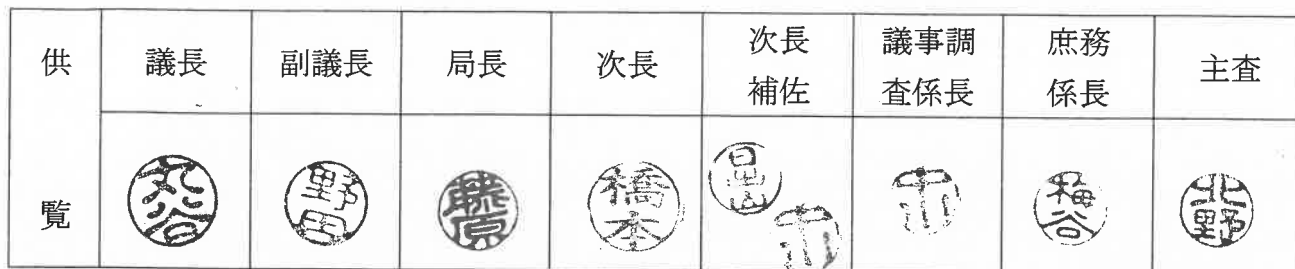 供覧
議長
副議長
局長
次長
次長
補佐
議事調
査係長
庶務
係長
主査
丸谷
野田
藤原
橋本
梅谷
北野